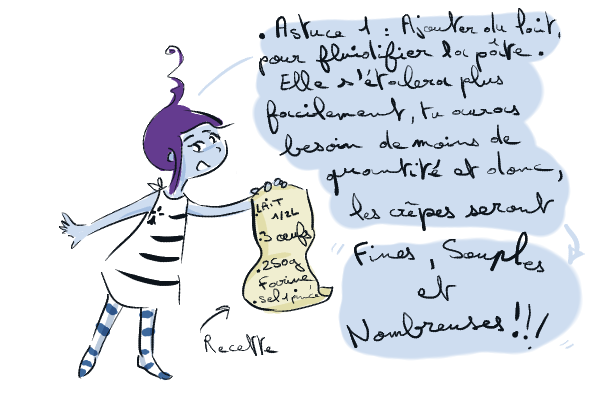 . Astuce 1 : Ajouter du lait,
pour fluidifier la pâte.
Elle s'étalera plus
facilement, tu auras
besoin de moins de
quantité et donc,
les crêpes seront
Fines, Souples
et
Nombreuses!!!
LAIT
1/2L
.3 œufs
.250g
Farine
.sel 1 pincé
Recette